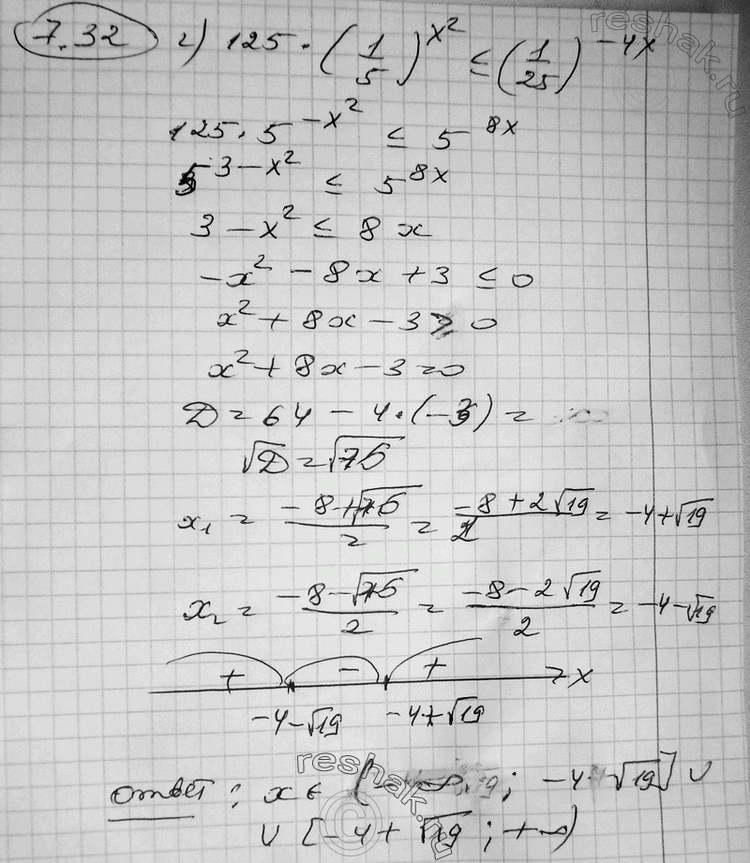 7.32 г) 125 · (1/5)^x² ≤ (1/25)^-4x
125 · 5^-x² ≤ 5^8x
5^3-x² ≤ 5^8x
3 - x² ≤ 8x
-x² - 8x + 3 ≤ 0
x² + 8x - 3 ≥ 0
x² + 8x - 3 = 0
D = 64 - 4·(-3) =
√D = √76
x₁ = (-8+√76)/2 = (-8+2√19)/2 = -4+√19
x₂ = (-8-√76)/2 = (-8-2√19)/2 = -4-√19
+ - + x
-4-√19 -4+√19
ответ: x ∈ (-∞; -4-√19] ∪
∪ [-4+√19; +∞)
reshak.ru
reshak.ru
©